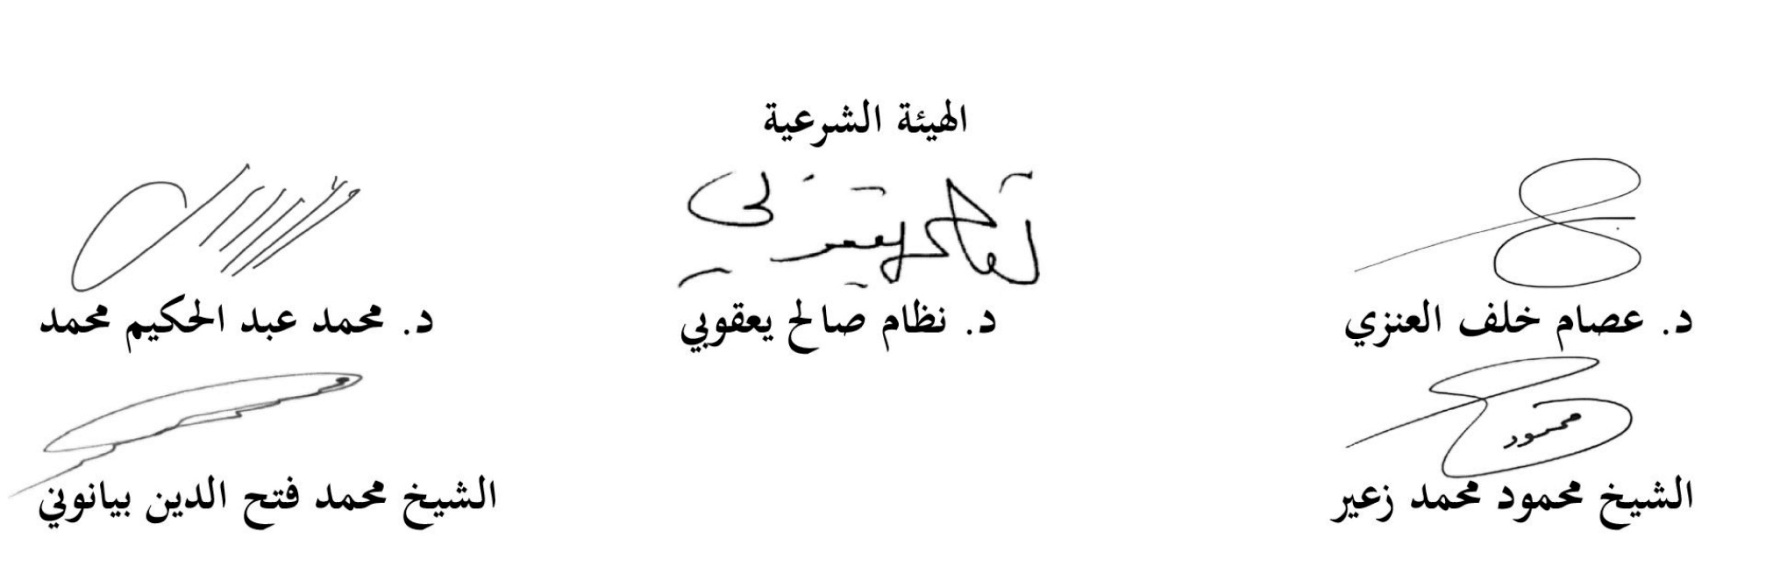 الهيئة الشرعية
د. عصام خلف العنزي
د. نظام صالح يعقوبي
د. محمد عبد الحكيم محمد
محمود
الشيخ محمود محمد زعير
الشيخ محمد فتح الدين بيانوني